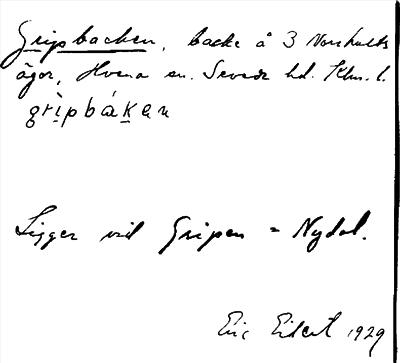 Gripbacken, backe å 3 Norrhults
ägor, Hvena sn. Sevede hd. Klm. l.
grìpbákan
Ligger vid Gripen = Nydal.
Eric Eilert 1929